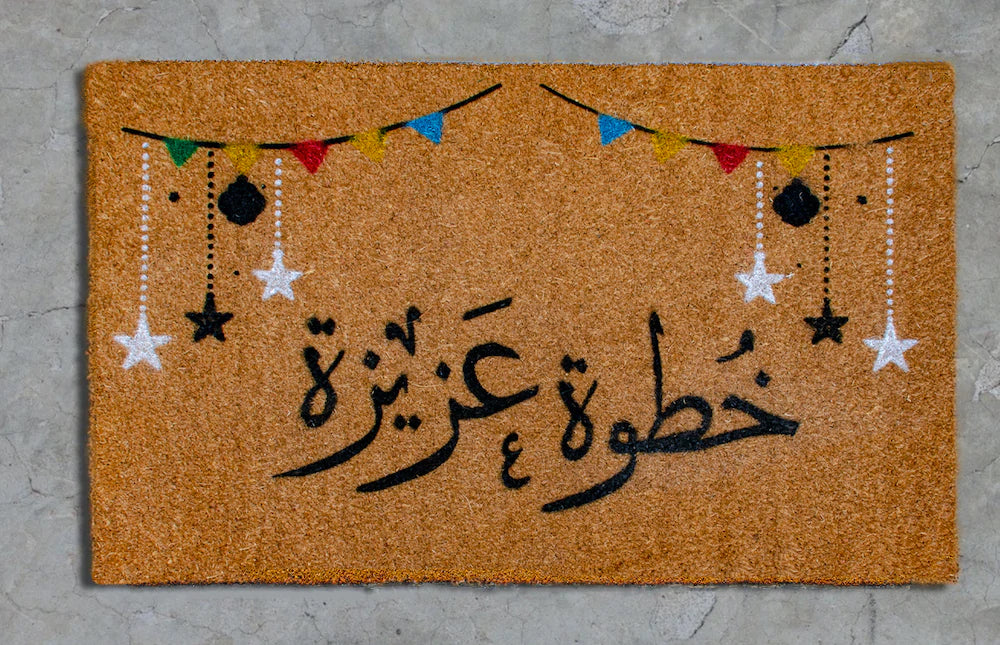 خُطوة عَزيزة